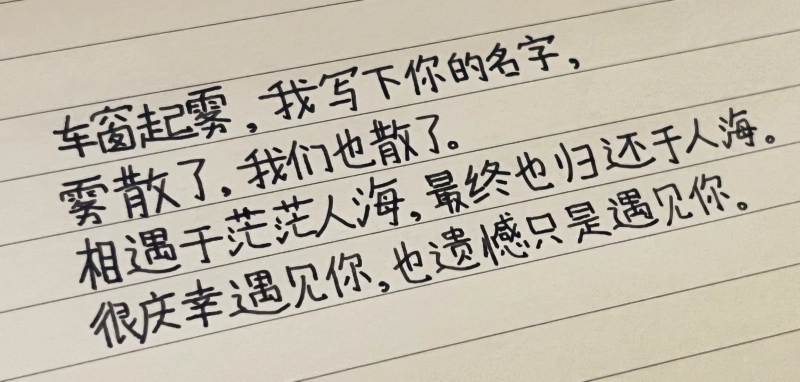 车窗起雾，我写下你的名字，
雾散了，我们也散了。
相遇于茫茫人海，最终也归还于人海。
很庆幸遇见你，也遗憾只是遇见你。